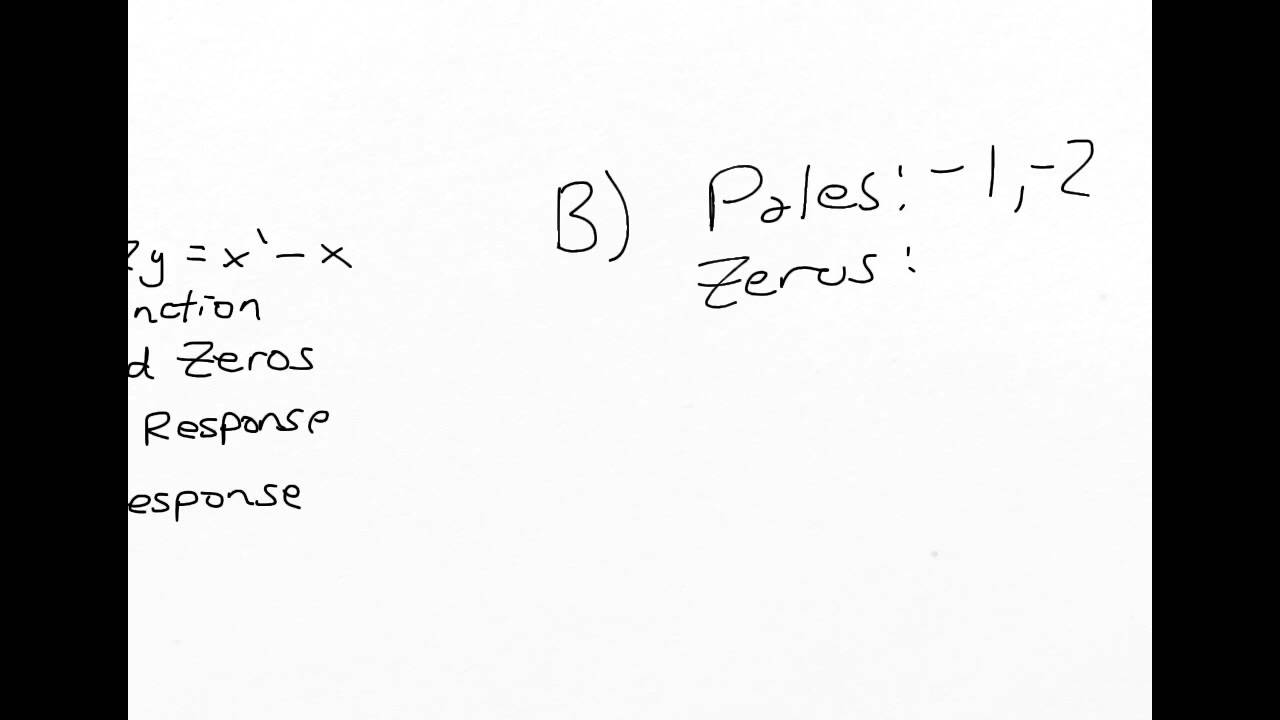 2y = x' - x
nction
d Zeros
Response
esponse
B) Poles: -1, -2
Zeros: